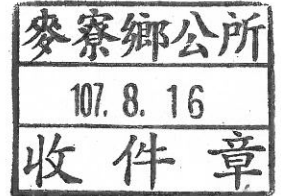 麥寮鄉公所
107. 8. 16
收件章